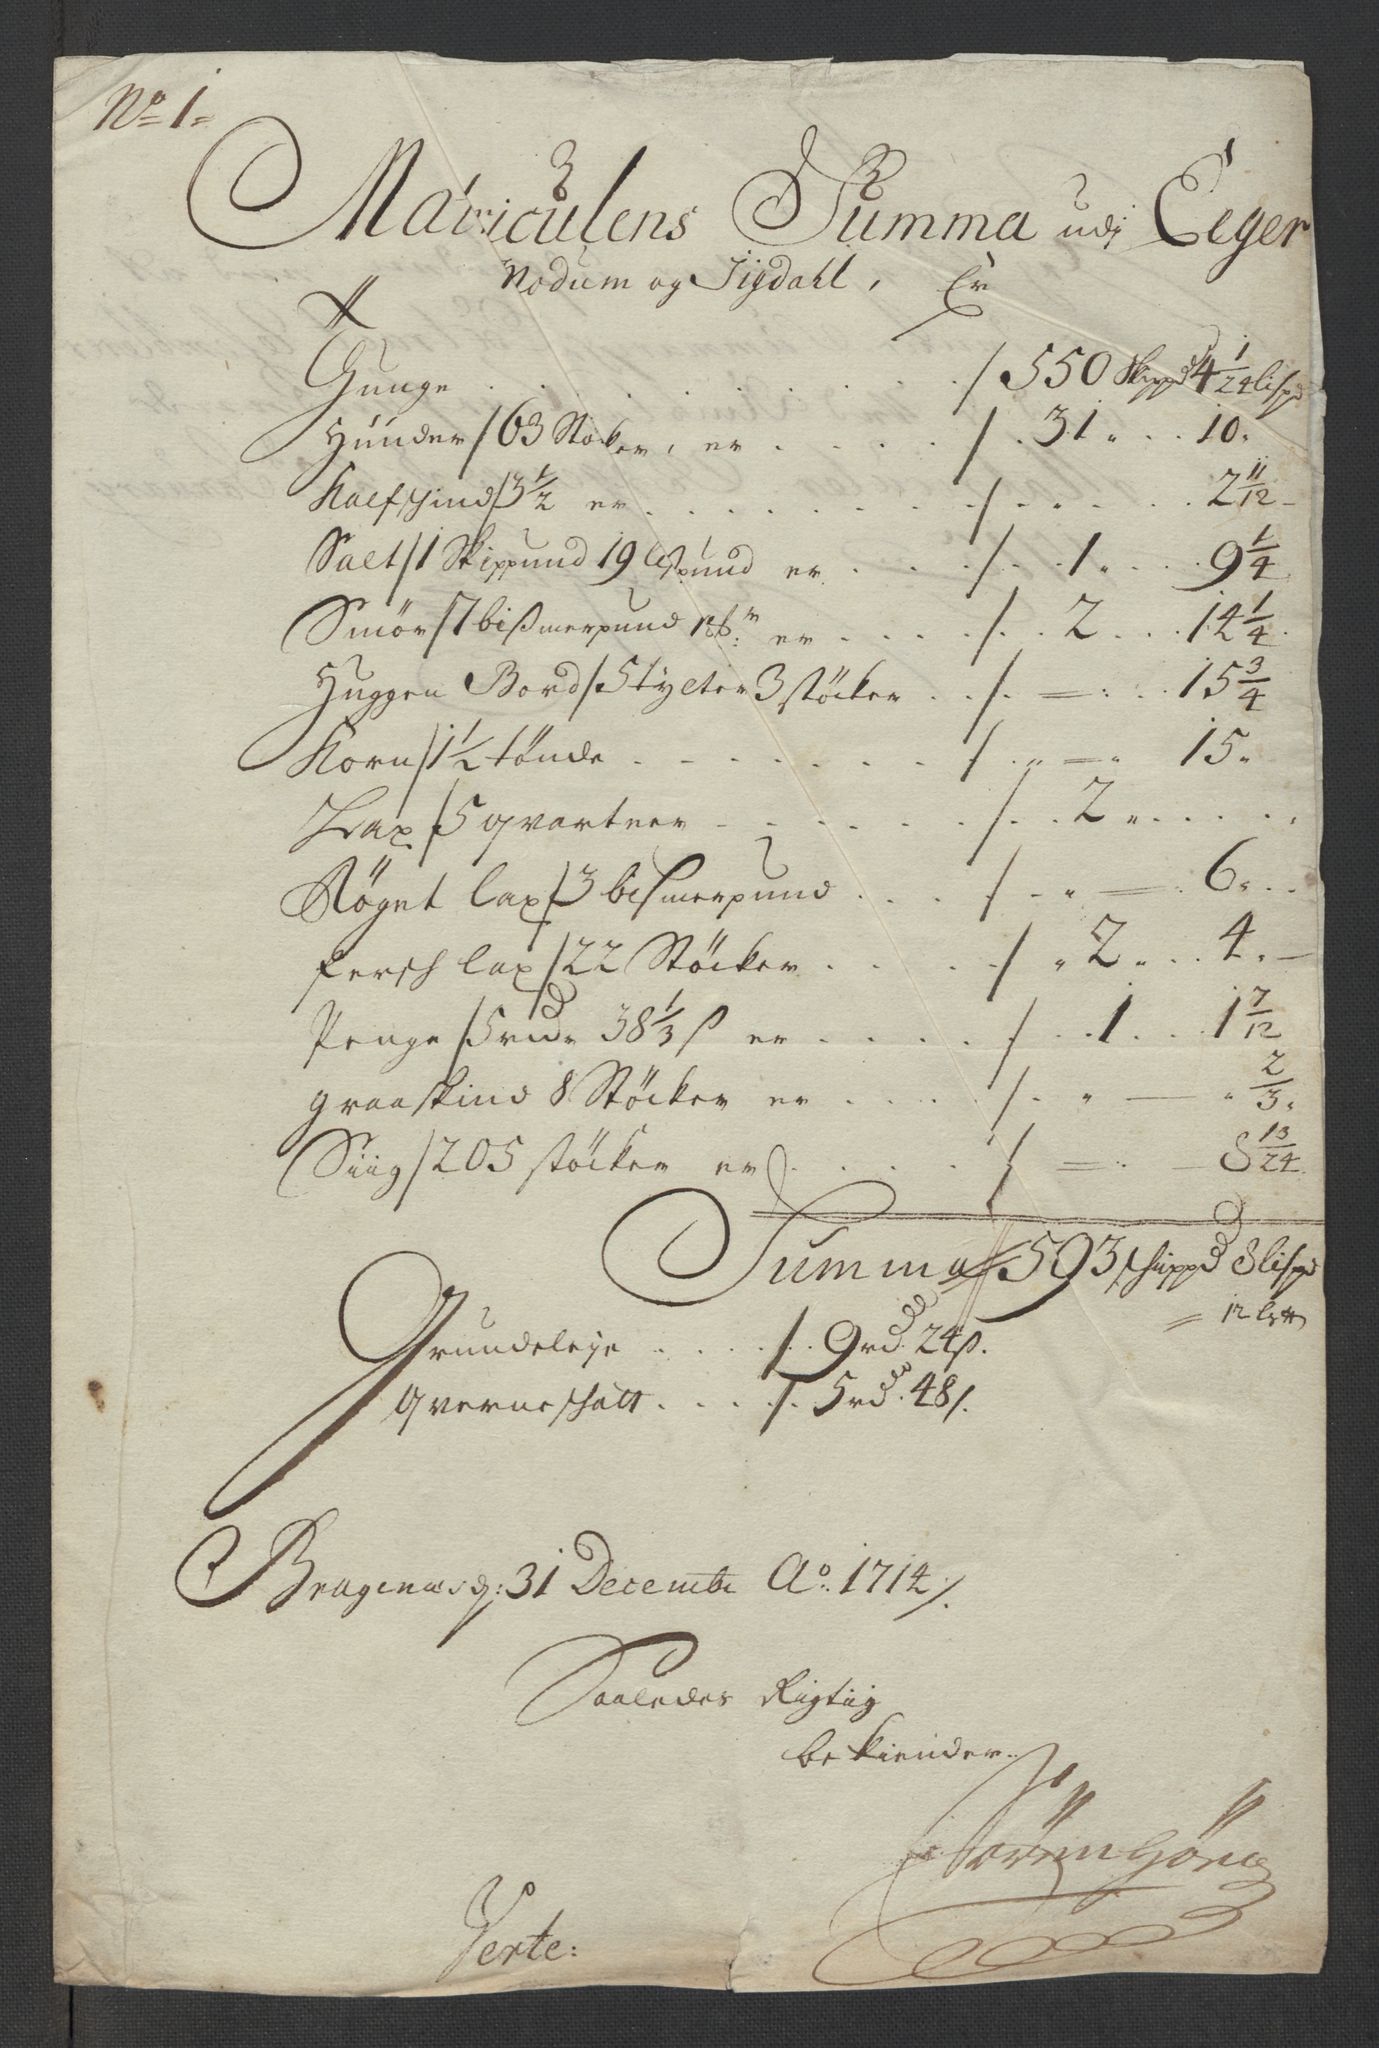 No 1.
Matriculens Summa udj Eeger
Modum og Sigdahl, Er
Tunge . . . / 550 Skippd 4 1/24 lispd
Huuder / 63 Stöcker, er . . . / 31 . . 10.
Kalfschind / 3 1/2 er . . . / . . . 2 11/12
Salt / 1 Skippund 19 lispund er . . . / 1 . . 9 1/4
Smör / 7 bismerpund er . . . / 2 . . 14 1/4
Huggen Bord / 5 tylter 3 stöcker . . / = . . 15 3/4
Korn / 1 1/2 tönde . . . / . = . 15.
Lax / 5 qvarteer . . . / 2 . . .
Röget lax / 3 bismerpund . . . / . = . 6. . .
fersch lax / 22 Stöcker . . . / 2 . . 4.
Penge / 5 rd 38 1/3 ß er . . . / 1 . . 1 7/12
graaskind 8 Stöcker er . . . / . . 2/3.
Siig / 205 stöcker er . . . / = . 8 13/24
Summa 593 schippd 8 lispd
= 12
Grundeleje . . . / . 9 rd. 24 ß.
Qverneschatt . . . / . 5 rd. 48 ß.
Bragenæs d: 31 Decembr Ao. 1714 /.
Saaledes Rigtiig
bekiender
Sören
Verte: